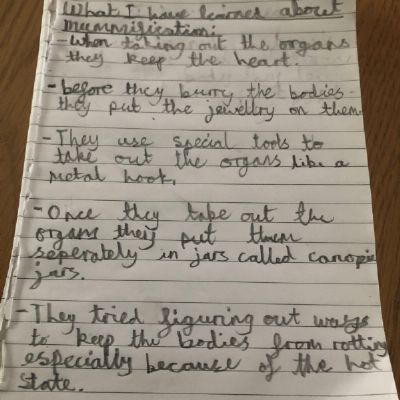 What I have learnes about
mummification:
-When taking out the organs
they keep the heart.
-before they burry the bodies
they put the jewellry on them.
-They use special tools to
take out the organs like a
metal hook,
-Once they take out the
organs they put them
seperately in jars called canopic
jars.
-They tried figuring out ways
to keep the bodies from rotting
especially because of the hot
state.